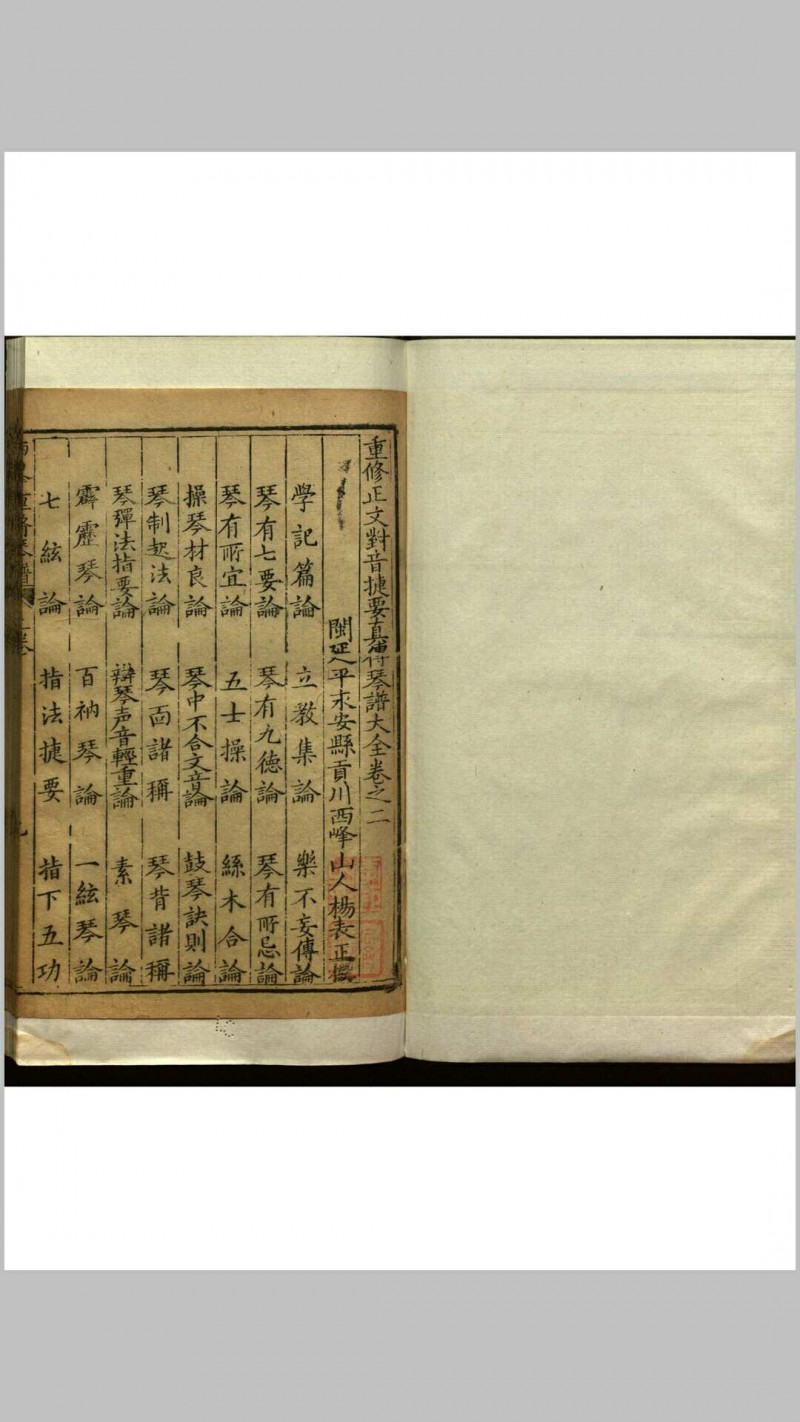 重修正文對音捷要真傳琴譜大全卷之二
閩延平永安縣貢川西峰山人楊表正撰
學記篇論 立教集論 樂不妄傳論
琴有七要論 琴有九德論 琴有所忌論
琴有所宜論 五士操論 絲木合論
操琴材良論 琴中不合文音論 鼓琴訣則論
琴制起法論 琴面諸稱 琴背諸稱
琴彈法指要論 辯琴声音輕重論 素琴論
霹靂琴論 百衲琴論 一絃琴論
七絃論 指法捷要 指下五功